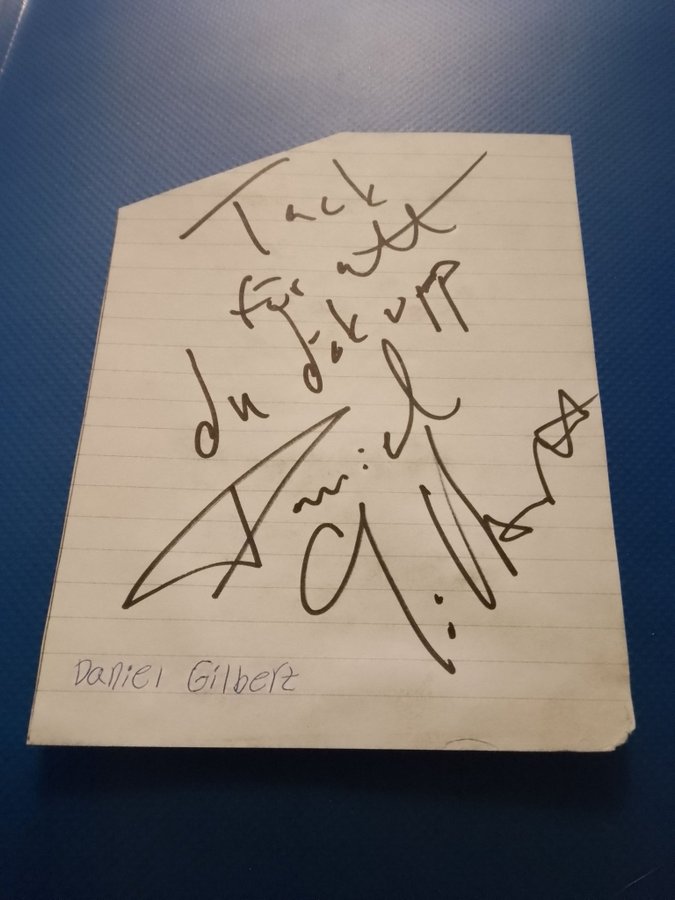 Tack
för att
du dök upp
Daniel
Gilbert
Daniel Gilbert